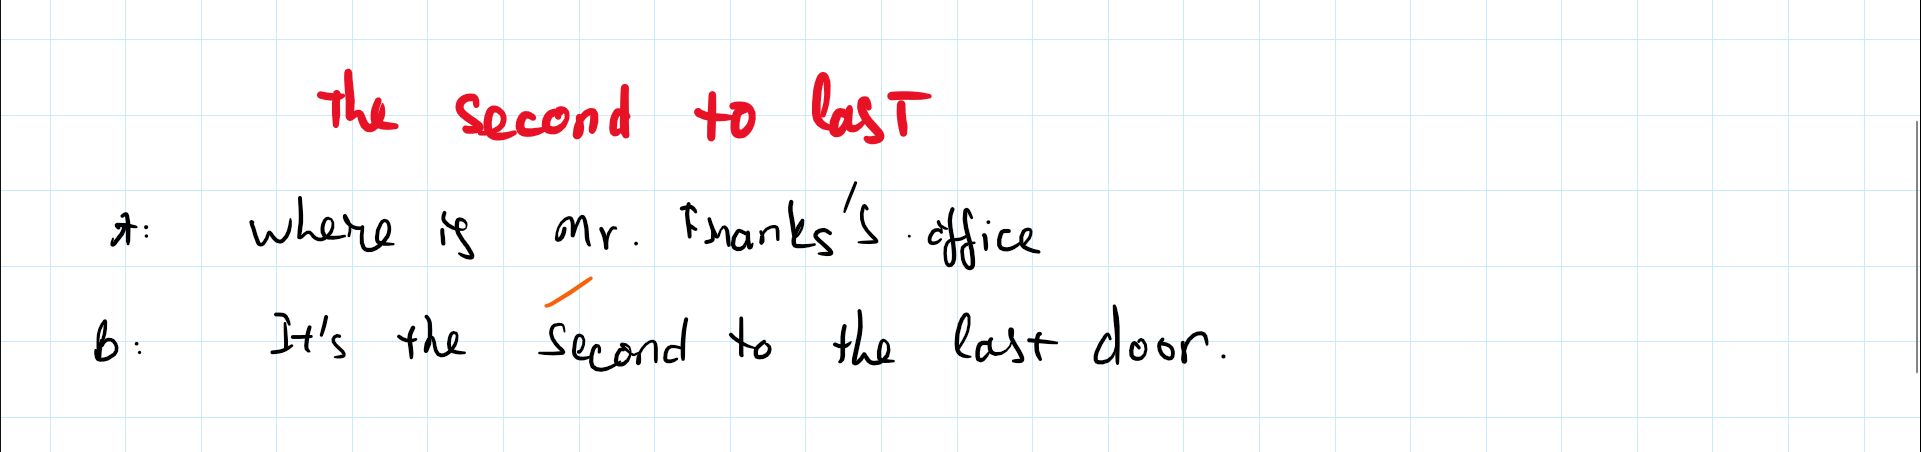 the second to last
A: where is Mr. Thanks's office
b: It's the second to the last door.